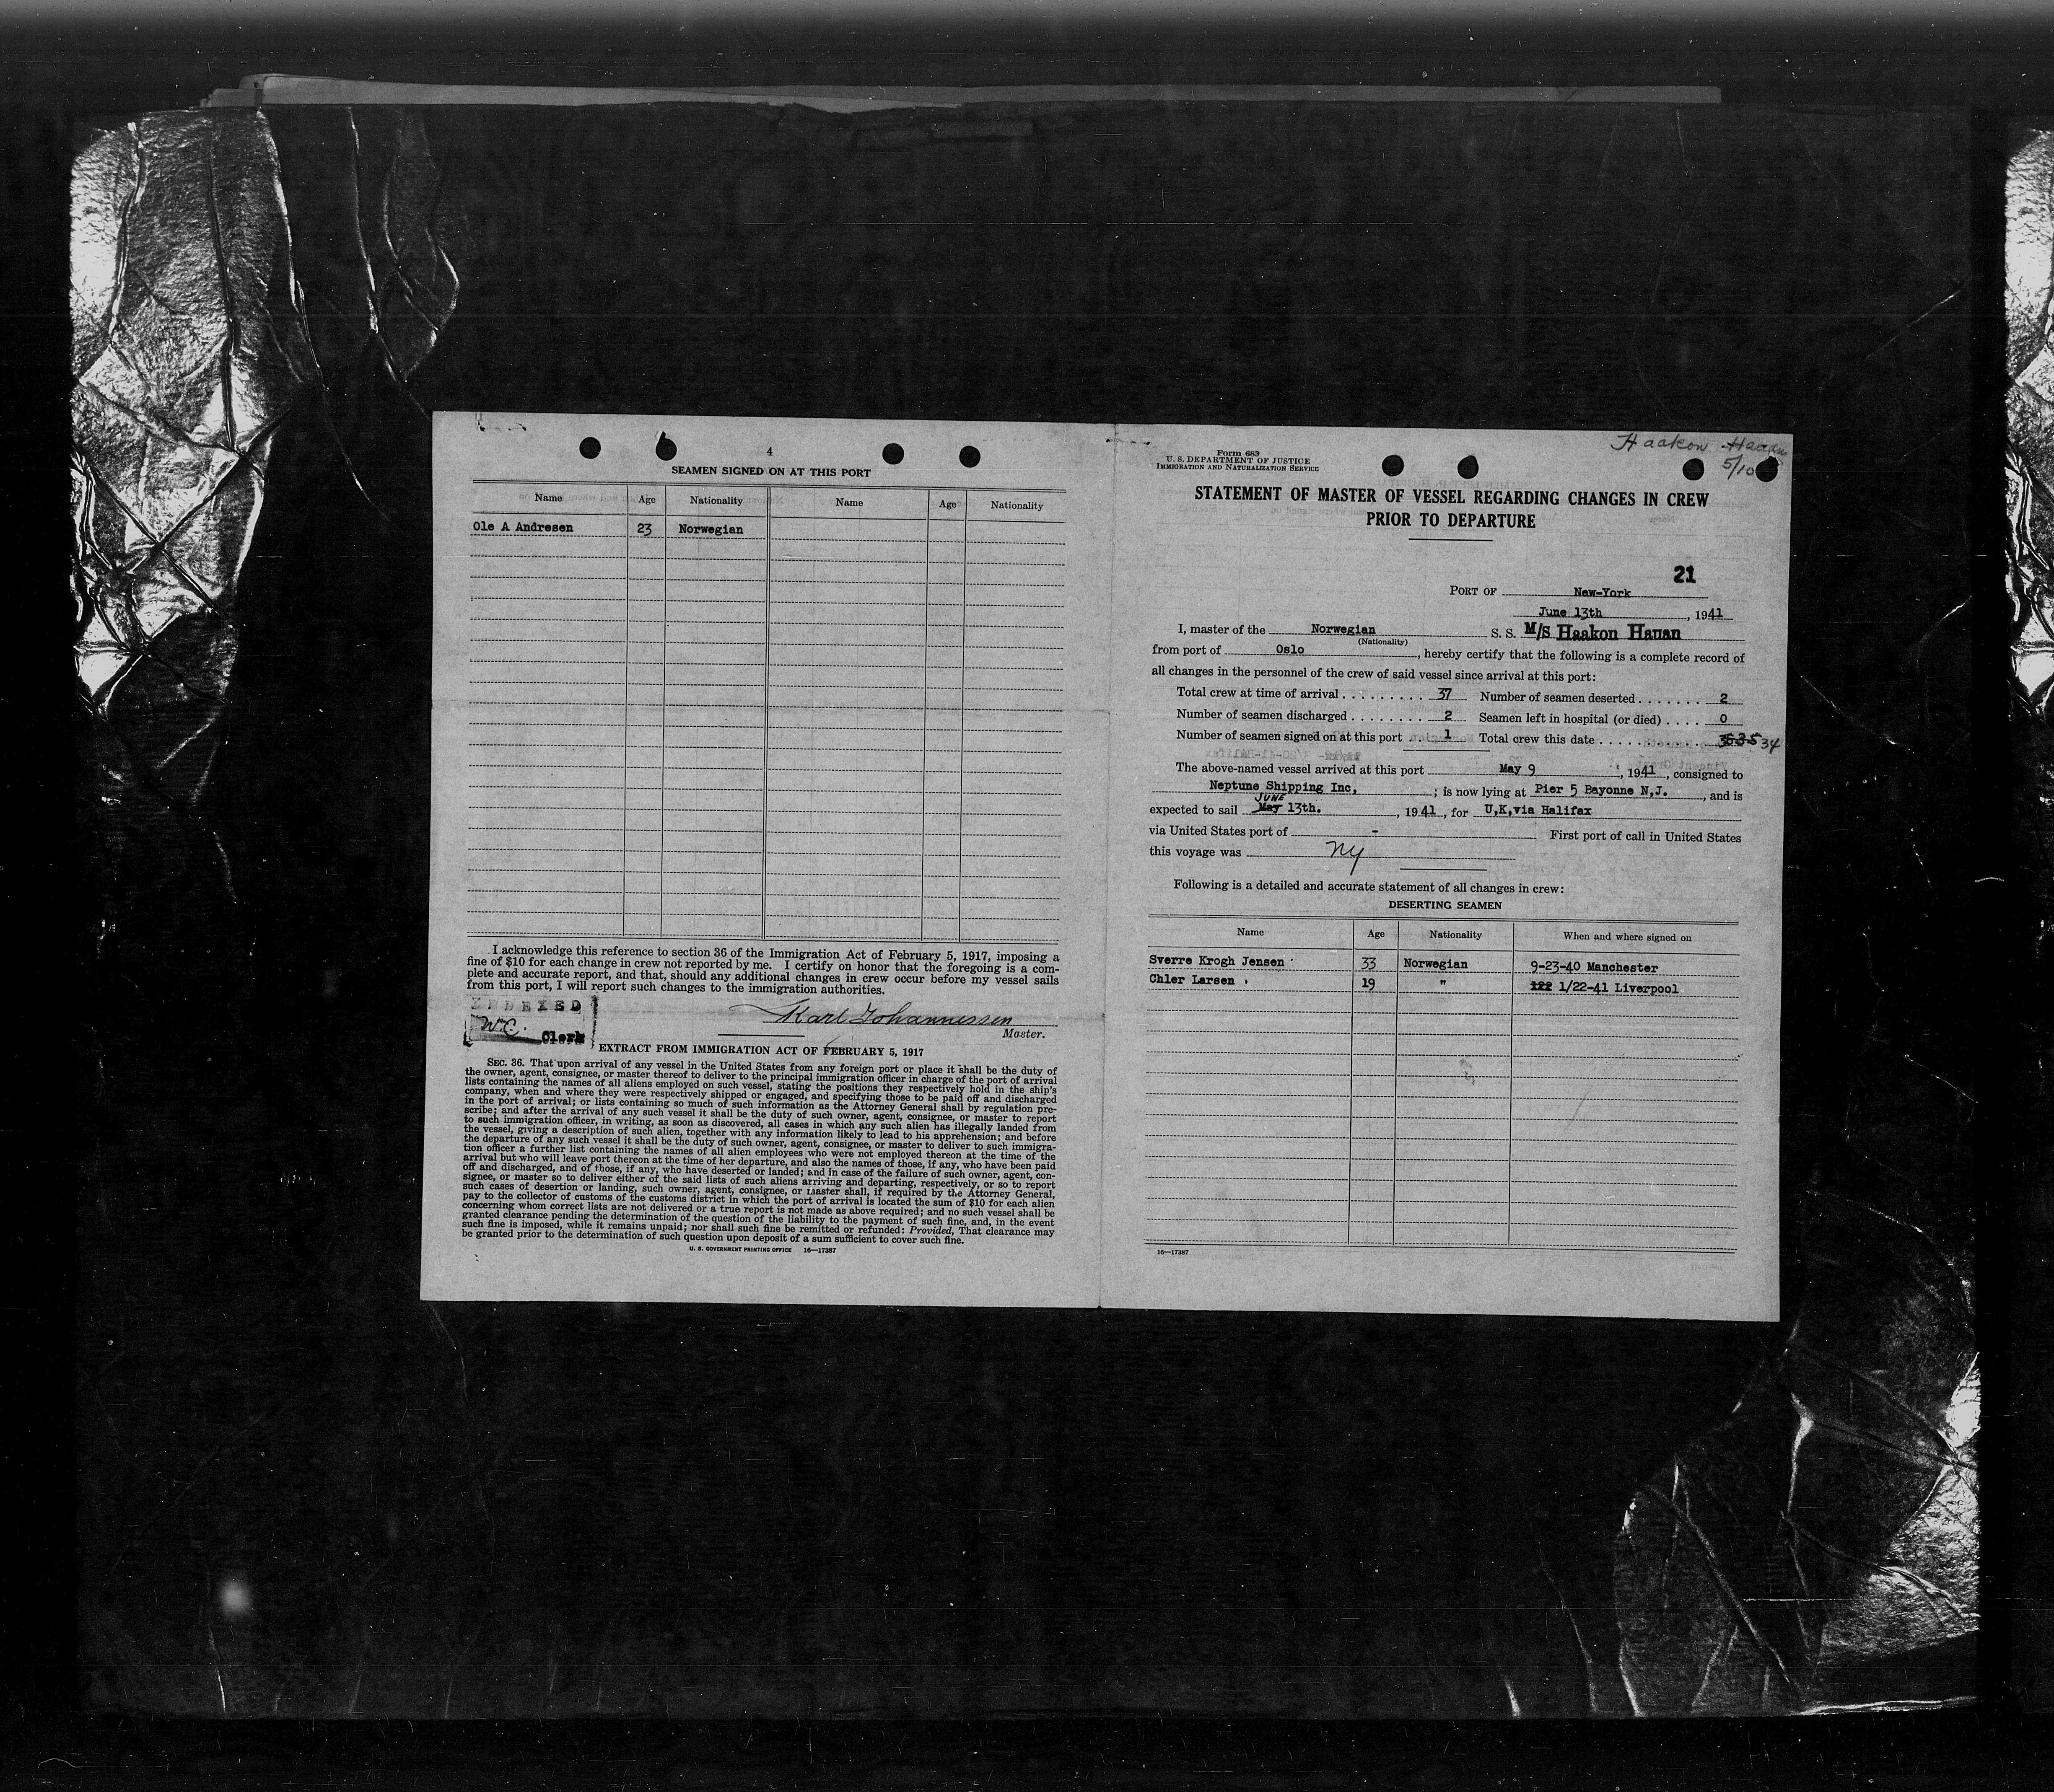 4
SEAMEN SIGNED ON AT THIS PORT
Name Age Nationality Name Age Nationality
Ole A Andresen 23 Norwegian
I acknowledge this reference to section 36 of the Immigration Act of February 5, 1917, imposing a
fine of $10 for each change in crew not reported by me. I certify on honor that the foregoing is a com-
plete and accurate report, and that, should any additional changes in crew occur before my vessel sails
from this port, I will report such changes to the immigration authorities.
INDEXED
W.C. Clerk
Karl Johannessen
Master.
EXTRACT FROM IMMIGRATION ACT OF FEBRUARY 5, 1917
SEC. 36. That upon arrival of any vessel in the United States from any foreign port or place it shall be the duty of
the owner, agent, consignee, or master thereof to deliver to the principal immigration officer in charge of the port of arrival
lists containing the names of all aliens employed on such vessel, stating the positions they respectively hold in the ship's
company, when and where they were respectively shipped or engaged, and specifying those to be paid off and discharged
in the port of arrival; or lists containing so much of such information as the Attorney General shall by regulation pre-
scribe; and after the arrival of any such vessel it shall be the duty of such owner, agent, consignee, or master to report
to such immigration officer, in writing, as soon as discovered, all cases in which any such alien has illegally landed from
the vessel, giving a description of such alien, together with any information likely to lead to his apprehension; and before
the departure of any such vessel it shall be the duty of such owner, agent, consignee, or master to deliver to such immigra-
tion officer a further list containing the names of all alien employees who were not employed thereon at the time of the
arrival but who will leave port thereon at the time of her departure, and also the names of those, if any, who have been paid
off and discharged, and of those, if any, who have deserted or landed; and in case of the failure of such owner, agent, con-
signee, or master so to deliver either of the said lists of such aliens arriving and departing, respectively, or so to report
such cases of desertion or landing, such owner, agent, consignee, or master shall, if required by the Attorney General,
pay to the collector of customs of the customs district in which the port of arrival is located the sum of $10 for each alien
concerning whom correct lists are not delivered or a true report is not made as above required; and no such vessel shall be
granted clearance pending the determination of the question of the liability to the payment of such fine, and, in the event
such fine is imposed, while it remains unpaid; nor shall such fine be remitted or refunded: Provided, That clearance may
be granted prior to the determination of such question upon deposit of a sum sufficient to cover such fine.
U. S. GOVERNMENT PRINTING OFFICE 16—17387
Haakon Hauan
5/10
Form 689
U. S. DEPARTMENT OF JUSTICE
IMMIGRATION AND NATURALIZATION SERVICE
STATEMENT OF MASTER OF VESSEL REGARDING CHANGES IN CREW
PRIOR TO DEPARTURE
21
PORT OF New-York
June 13th, 1941
I, master of the Norwegian S. S. M/S Haakon Hauan
(Nationality)
from port of Oslo, hereby certify that the following is a complete record of
all changes in the personnel of the crew of said vessel since arrival at this port:
Total crew at time of arrival 37 Number of seamen deserted 2
Number of seamen discharged 2 Seamen left in hospital (or died) 0
Number of seamen signed on at this port 1 Total crew this date 34
The above-named vessel arrived at this port May 9, 1941, consigned to
Neptune Shipping Inc,; is now lying at Pier 5 Bayonne N,J., and is
JUNE
expected to sail May 13th., 1941, for U,K,via Halifax
via United States port of - First port of call in United States
this voyage was NY
Following is a detailed and accurate statement of all changes in crew:
DESERTING SEAMEN
Name Age Nationality When and where signed on
Sverre Krogh Jensen 33 Norwegian 9-23-40 Manchester
Chler Larsen 19 " 122 1/22-41 Liverpool
16—17387